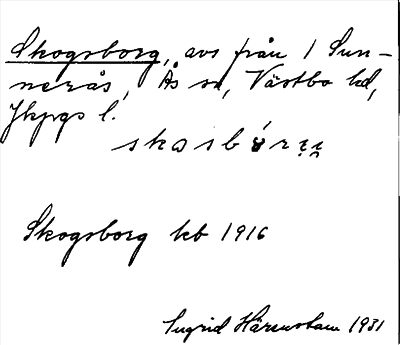 Skogsborg, avs från 1 Sun-
nerås, Ås sn, Västbo hd,
Jkpgs l.
skasbór
Skogsborg kb 1916
Ingrid Härenstam 1931